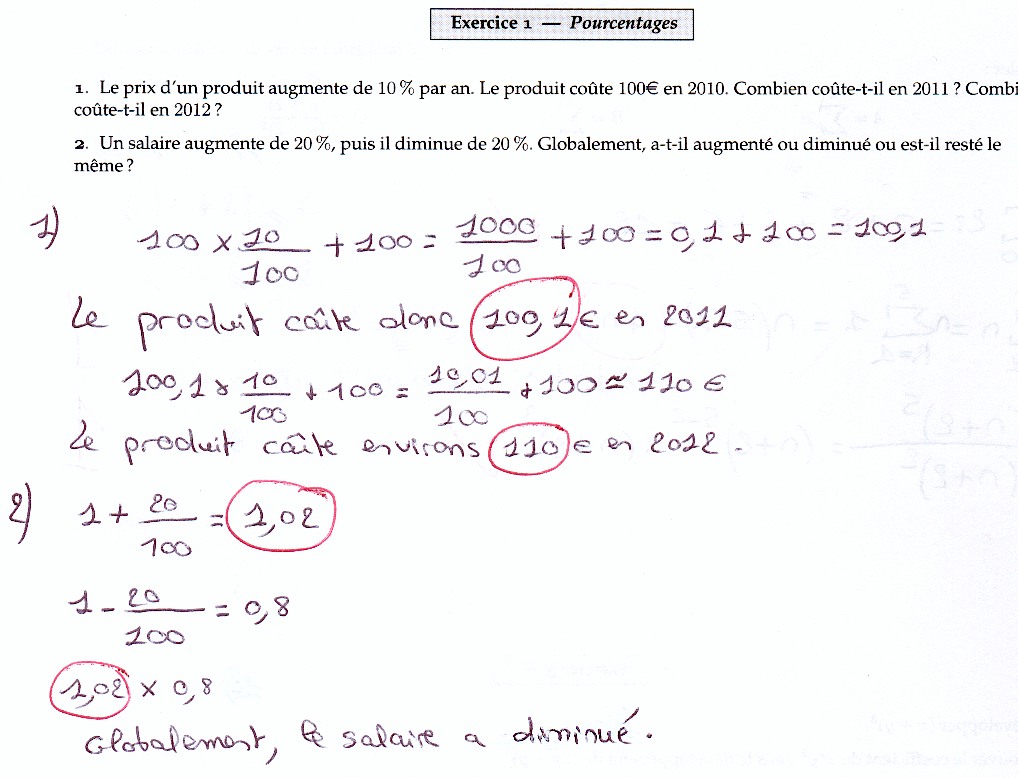 Exercice 1 — Pourcentages
1. Le prix d'un produit augmente de 10 % par an. Le produit coûte 100€ en 2010. Combien coûte-t-il en 2011 ? Combi
coûte-t-il en 2012 ?
2. Un salaire augmente de 20 %, puis il diminue de 20 %. Globalement, a-t-il augmenté ou diminué ou est-il resté le
même ?
1) 100 × 10/100 + 100 = 1000/100 + 100 = 0,1 + 100 = 100,1
Le produit coûte donc 100,1 € en 2011
100,1 × 10/100 + 100 = 10,01/100 + 100 ≈ 110 €
Le produit coûte environs 110 € en 2012.
2) 1 + 20/100 = 1,02
1 - 20/100 = 0,8
1,02 × 0,8
Globalement, le salaire a diminué.